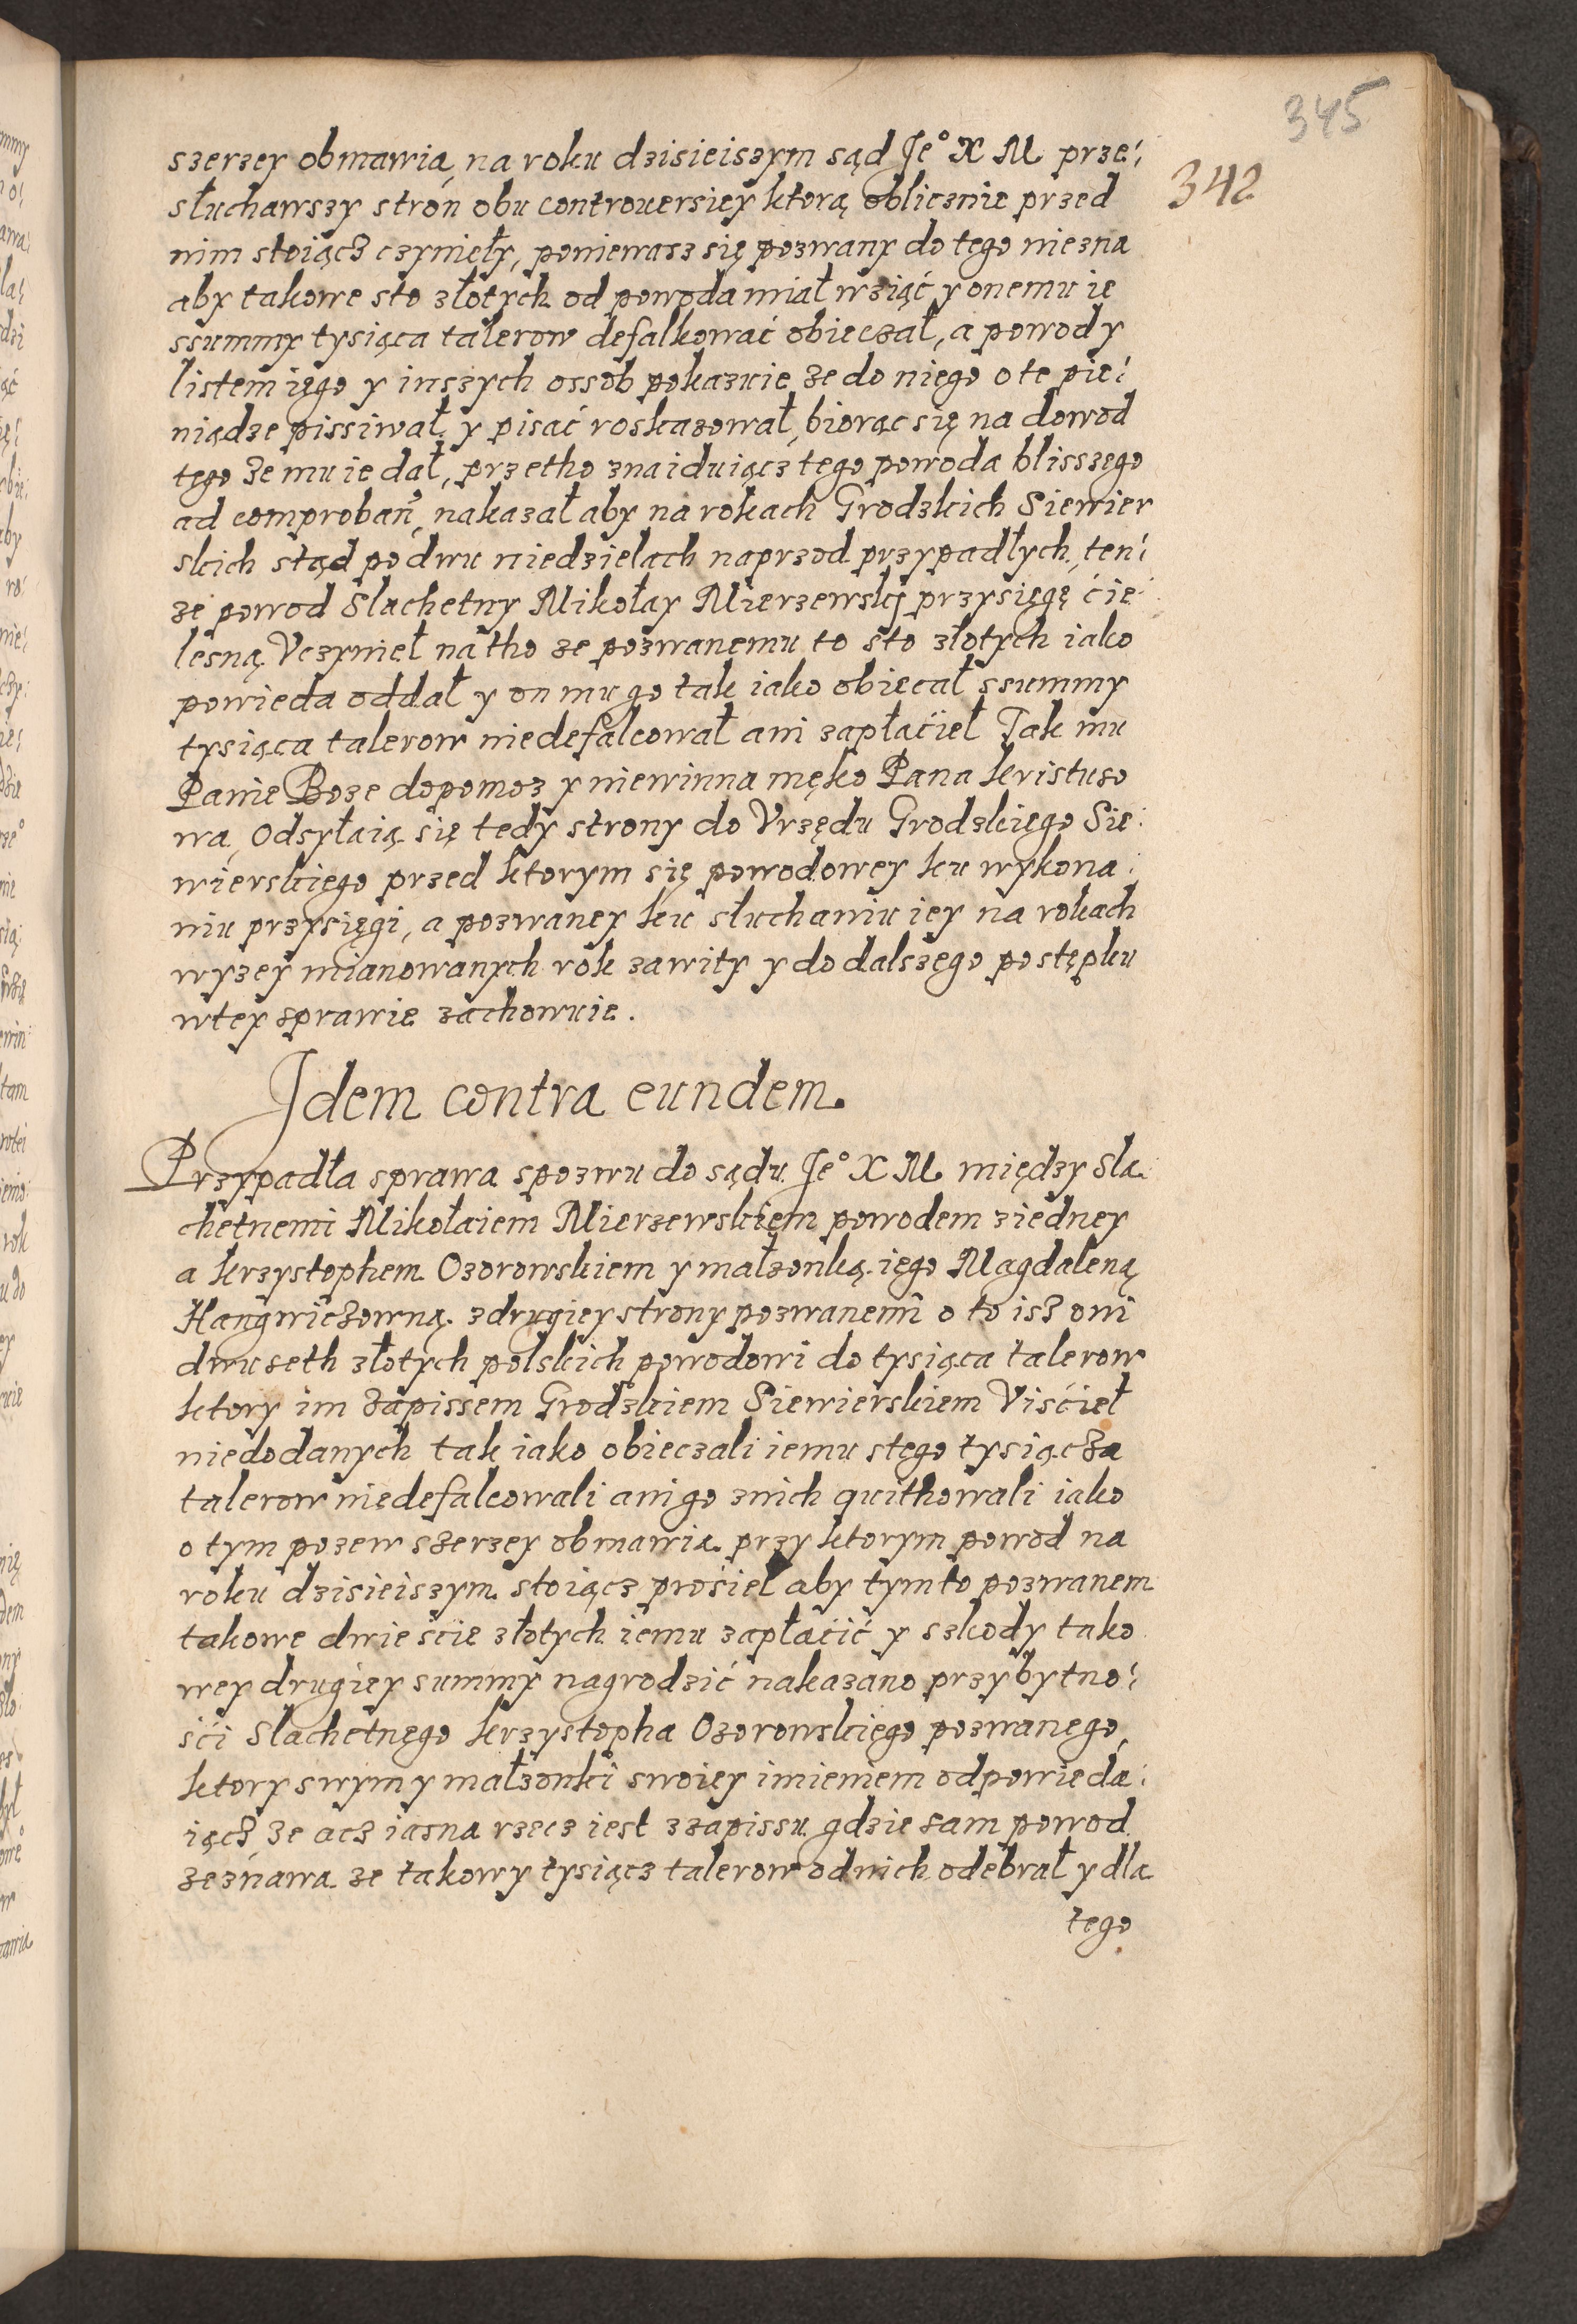 345
342
szerzey obmawia, na roku dzisieiszym sąd Je° X M prze:
słuchawszy stron obu controuersiey ktorą oblicznie przed
nim stoiącz czyniełÿ, poniewasz się pozwany do tego niezna
aby takowe sto złotych od powoda miał wziąć y onemu ie
ssummy tysiąca talerow defalkować obieczał, a powod y
listem iego y inszych ossob pokazuie że do niego o te pie:
niądze pissiwał y pisać roskazował, biorąc się na dowod
tego że mu ie dał, przetho znaiduiącz tego powoda blisszego
ad comproban̄, nakazał aby na rokach Grodzkich Siewier
skich stąd po dwu niedzielach naprzod przypadłych, ten:
że powod Slachetny Mikołay Mierzewskÿ przysięgę ćie:
lesną Vczynieł na tho ze pozwanemu to sto złotych iako
powieda oddał y on mu go tak iako obiecał ssummy
tysiąca talerow niedefalcował ani zapłaćieł Tak mu
Panie Boze dopomoz y niewinna męko Pana Kristuso
wa, Odsyłaią się tedy strony do Vrzędu Grodzkiego Sie:
wierskiego przed ktorym się powodowey ku wykona:
niu przysięgi, a pozwaney ku słuchaniu iey na rokach
wyzey mianowanych rok zawity y do dalszego postępku
wtey sprawie zachowuie.
Jdem contra eundem.
Przypadła sprawa spozwu do sądu Je° X M między Sla:
chetnemi Mikołaiem Mierzewskiem powodem ziedney
a Krzystophem Ozorowskiem y małzonką iego Magdaleną
Haugwiczowną zdrugiey strony pozwanemi o to isz oni
dwuseth złotych polskich powodowi do tysiąca talerow
ktory im zapissem Grodzkiem Siewierskiem Viśćieł
niedodanych tak iako obieczali iemu stego tysiącza
talerow niedefalcowali ani go znich quithowali iako
o tym pozew szerzey obmawia przy ktorym powod na
roku dzisieiszym stoiącz prosieł aby tymto pozwanem
takowe dwieście złotych iemu zapłaćić y szkody tako
wey drugiey summy nagrodzić nakazano przy bytno:
śći Slachetnego Krzystopha Ozorowskiego pozwanego,
ktory swym y małzonki swoiey imieniem odpowieda:
iącz że acz iasna rzecz iest zzapissu gdzie sam powod
zeznawa ze takowy tysiącz talerow odnich odebrał y dla
tego